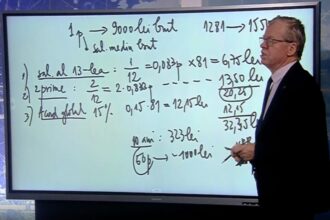 1p → 9000 lei brut 1281 → 155
sal. mediu brut
1) sal al 13-lea : 1/12 = 0,083p × 81 = 6,75 lei
2) 2 prime : 2/12 = 2·0,083p ------- 13,50 lei
20,25
3) Acord global 15% 0,15·81 = 12,15 lei 12,15
32,35 lei
40 ani : 323 lei
60p → ~1000 lei